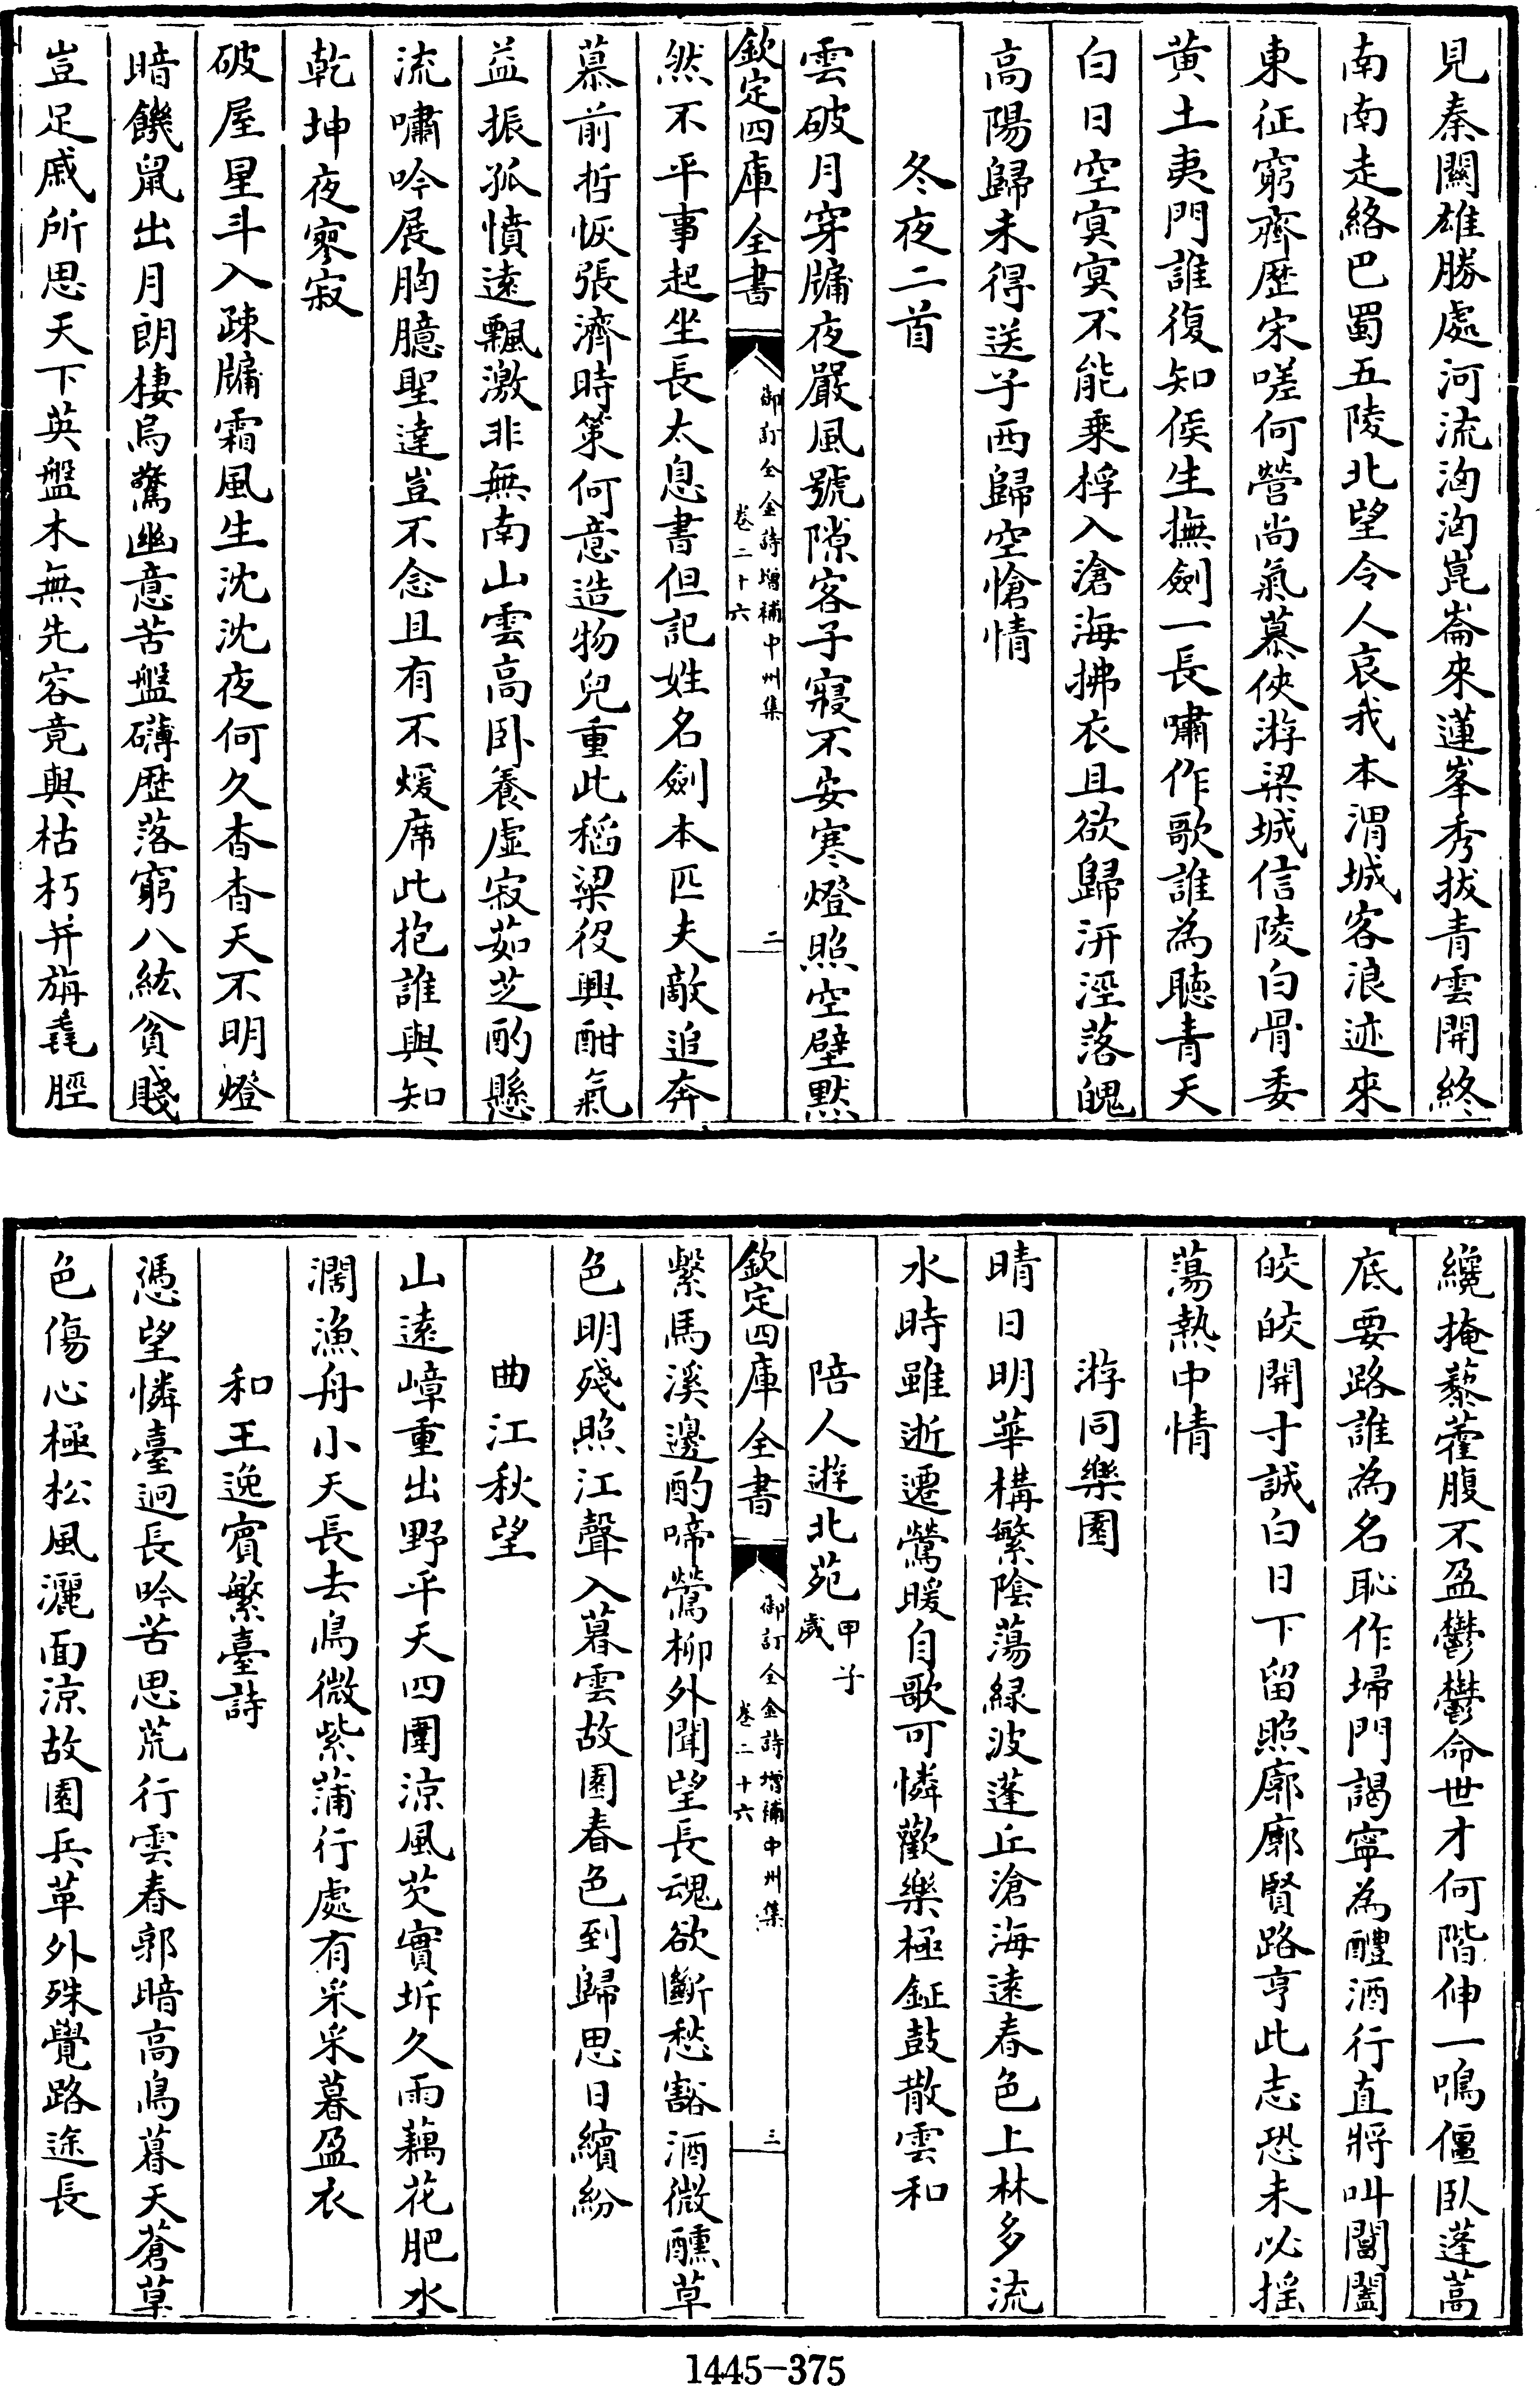 見秦關雄勝處河流洶洶崑崙來蓮峯秀拔青雲開終
南南走絡巴蜀五陵北望令人哀我本渭城客浪迹來
東征窮齊歴宋嗟何營尚氣慕俠游梁城信陵白骨委
黄土夷門誰復知侯生撫劍一長嘯作歌誰為聽青天
白日空冥冥不能乗桴入滄海拂衣且欲歸汧涇落魄
高陽歸未得送子西歸空愴情
冬夜二首
雲破月穿牗夜嚴風號隙客子寢不安寒燈照空壁黙
欽定四庫全書
御訂全金詩增補中州集
卷二十六
二
然不平事起坐長太息書但記姓名劍本匹夫敵追奔
慕前哲恢張濟時策何意造物兒重此稻粱役興酣氣
益振孤憤遠飄激非無南山雲高卧養虛寂茹芝酌懸
流嘯吟展胸臆聖達豈不念且有不煖席此抱誰與知
乾坤夜寥寂
破屋星斗入疎牗霜風生沈沈夜何久杳杳天不明燈
暗饑鼠出月朗棲烏驚幽意苦盤礴歴落窮八紘貧賤
豈足戚所思天下英盤木無先容竟與枯朽并旃毳脛
纔掩藜藿腹不盈鬱鬱命世才何階伸一鳴僵臥蓬蒿
底要路誰為名恥作埽門謁寧為醴酒行直將叫閶闔
皎皎開寸誠白日下留照廓廓賢路亨此志恐未必揺
蕩熱中情
游同樂園
晴日明華構繁陰蕩緑波蓬丘滄海遠春色上林多流
水時雖逝遷鶯暖自歌可憐歡樂極鉦鼓散雲和
陪人遊北苑甲子歲
欽定四庫全書
御訂全金詩增補中州集
卷二十六
三
繫馬溪邊酌啼鶯柳外聞望長魂欲斷愁豁酒微醺草
色明殘照江聲入暮雲故園春色到歸思日繽紛
曲江秋望
山遠嶂重出野平天四圍涼風芡實坼久雨藕花肥水
濶漁舟小天長去鳥微紫蒲行處有采采暮盈衣
和王逸賓繁臺詩
憑望憐臺迥長吟苦思荒行雲春郭暗高鳥暮天蒼草
色傷心極松風灑面涼故園兵革外殊覺路途長
1445-375